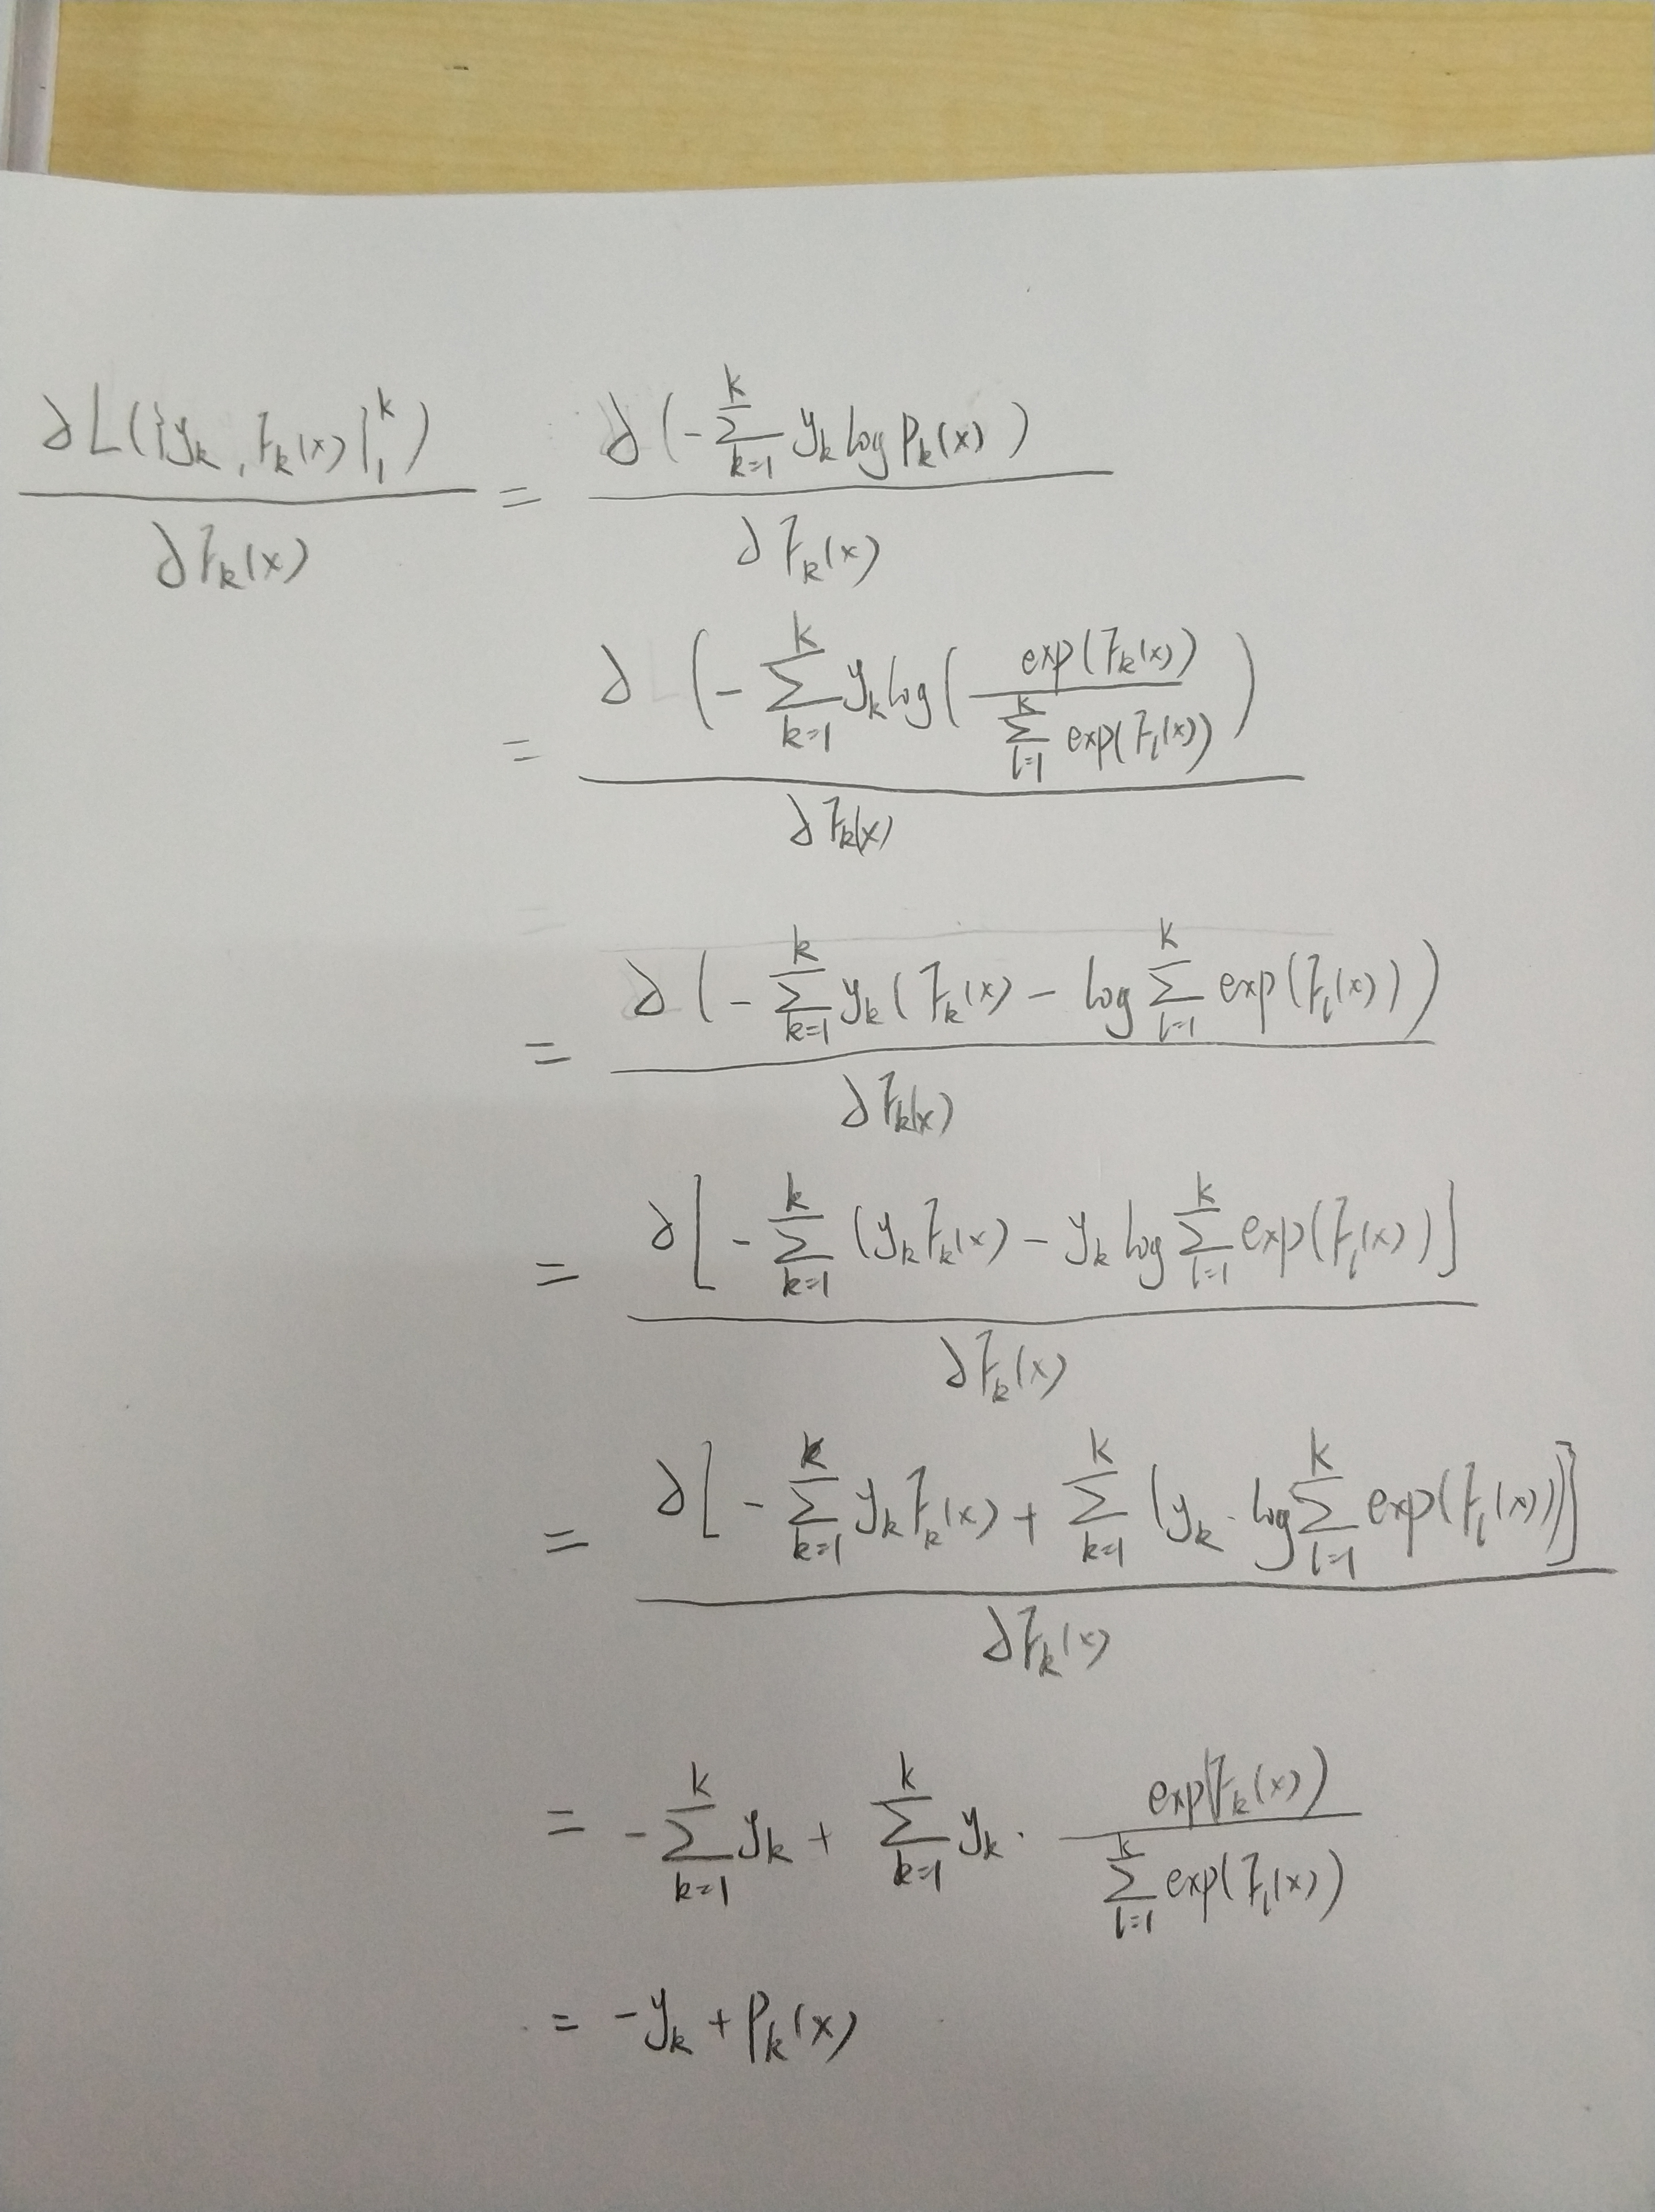 ∂L({y_k, F_k(x)|_1^k) / ∂F_k(x) = ∂(-∑_{k=1}^{k} y_k log p_k(x)) / ∂F_k(x)
= ∂(-∑_{k=1}^{k} y_k log(exp(F_k(x)) / ∑_{l=1}^{k} exp(F_l(x))) / ∂F_k(x)
= ∂(-∑_{k=1}^{k} y_k(F_k(x) - log ∑_{l=1}^{k} exp(F_l(x))) / ∂F_k(x)
= ∂[-∑_{k=1}^{k} (y_k F_k(x) - y_k log ∑_{l=1}^{k} exp(F_l(x))] / ∂F_k(x)
= ∂[-∑_{k=1}^{k} y_k F_k(x) + ∑_{k=1}^{k} (y_k · log ∑_{l=1}^{k} exp(F_l(x)))] / ∂F_k(x)
= -∑_{k=1}^{k} y_k + ∑_{k=1}^{k} y_k · exp(F_k(x)) / ∑_{l=1}^{k} exp(F_l(x))
= -y_k + p_k(x)